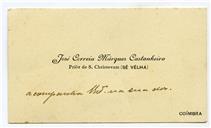 José Correia Marques Castanheira
Prior de S. Christovam (SÉ VELHA)
acompanha V. na sua dor.
COIMBRA